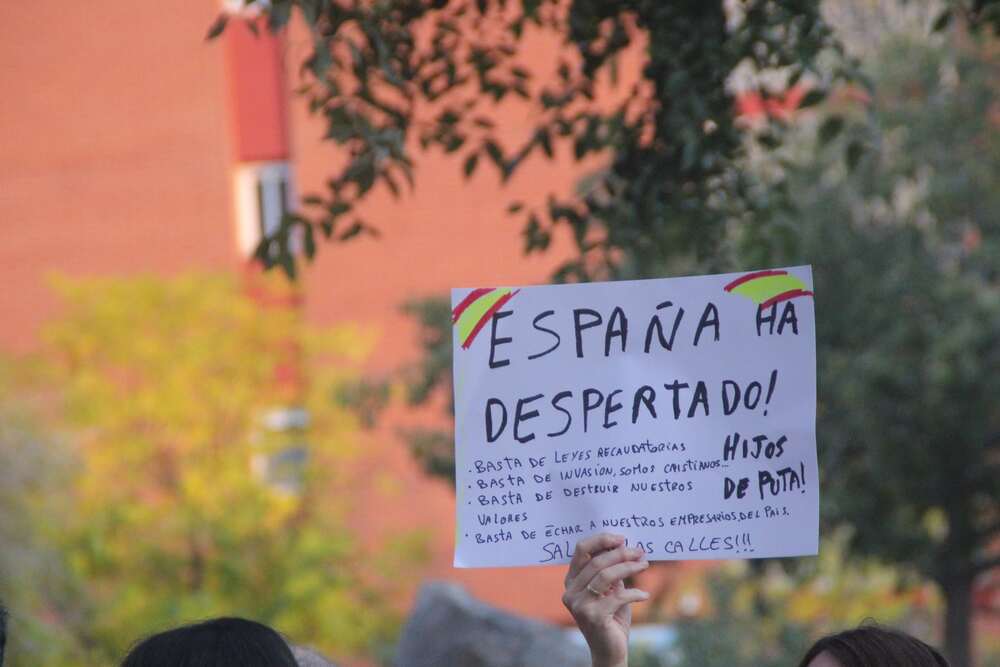 ESPAÑA HA
DESPERTADO!
· BASTA DE LEYES RECAUDATORIAS
· BASTA DE INVASION, SOMOS CRISTIANOS...
· BASTA DE DESTRUIR NUESTROS
VALORES
· BASTA DE ECHAR A NUESTROS EMPRESARIOS DEL PAIS.
HIJOS
DE PUTA!
CALLES!!!